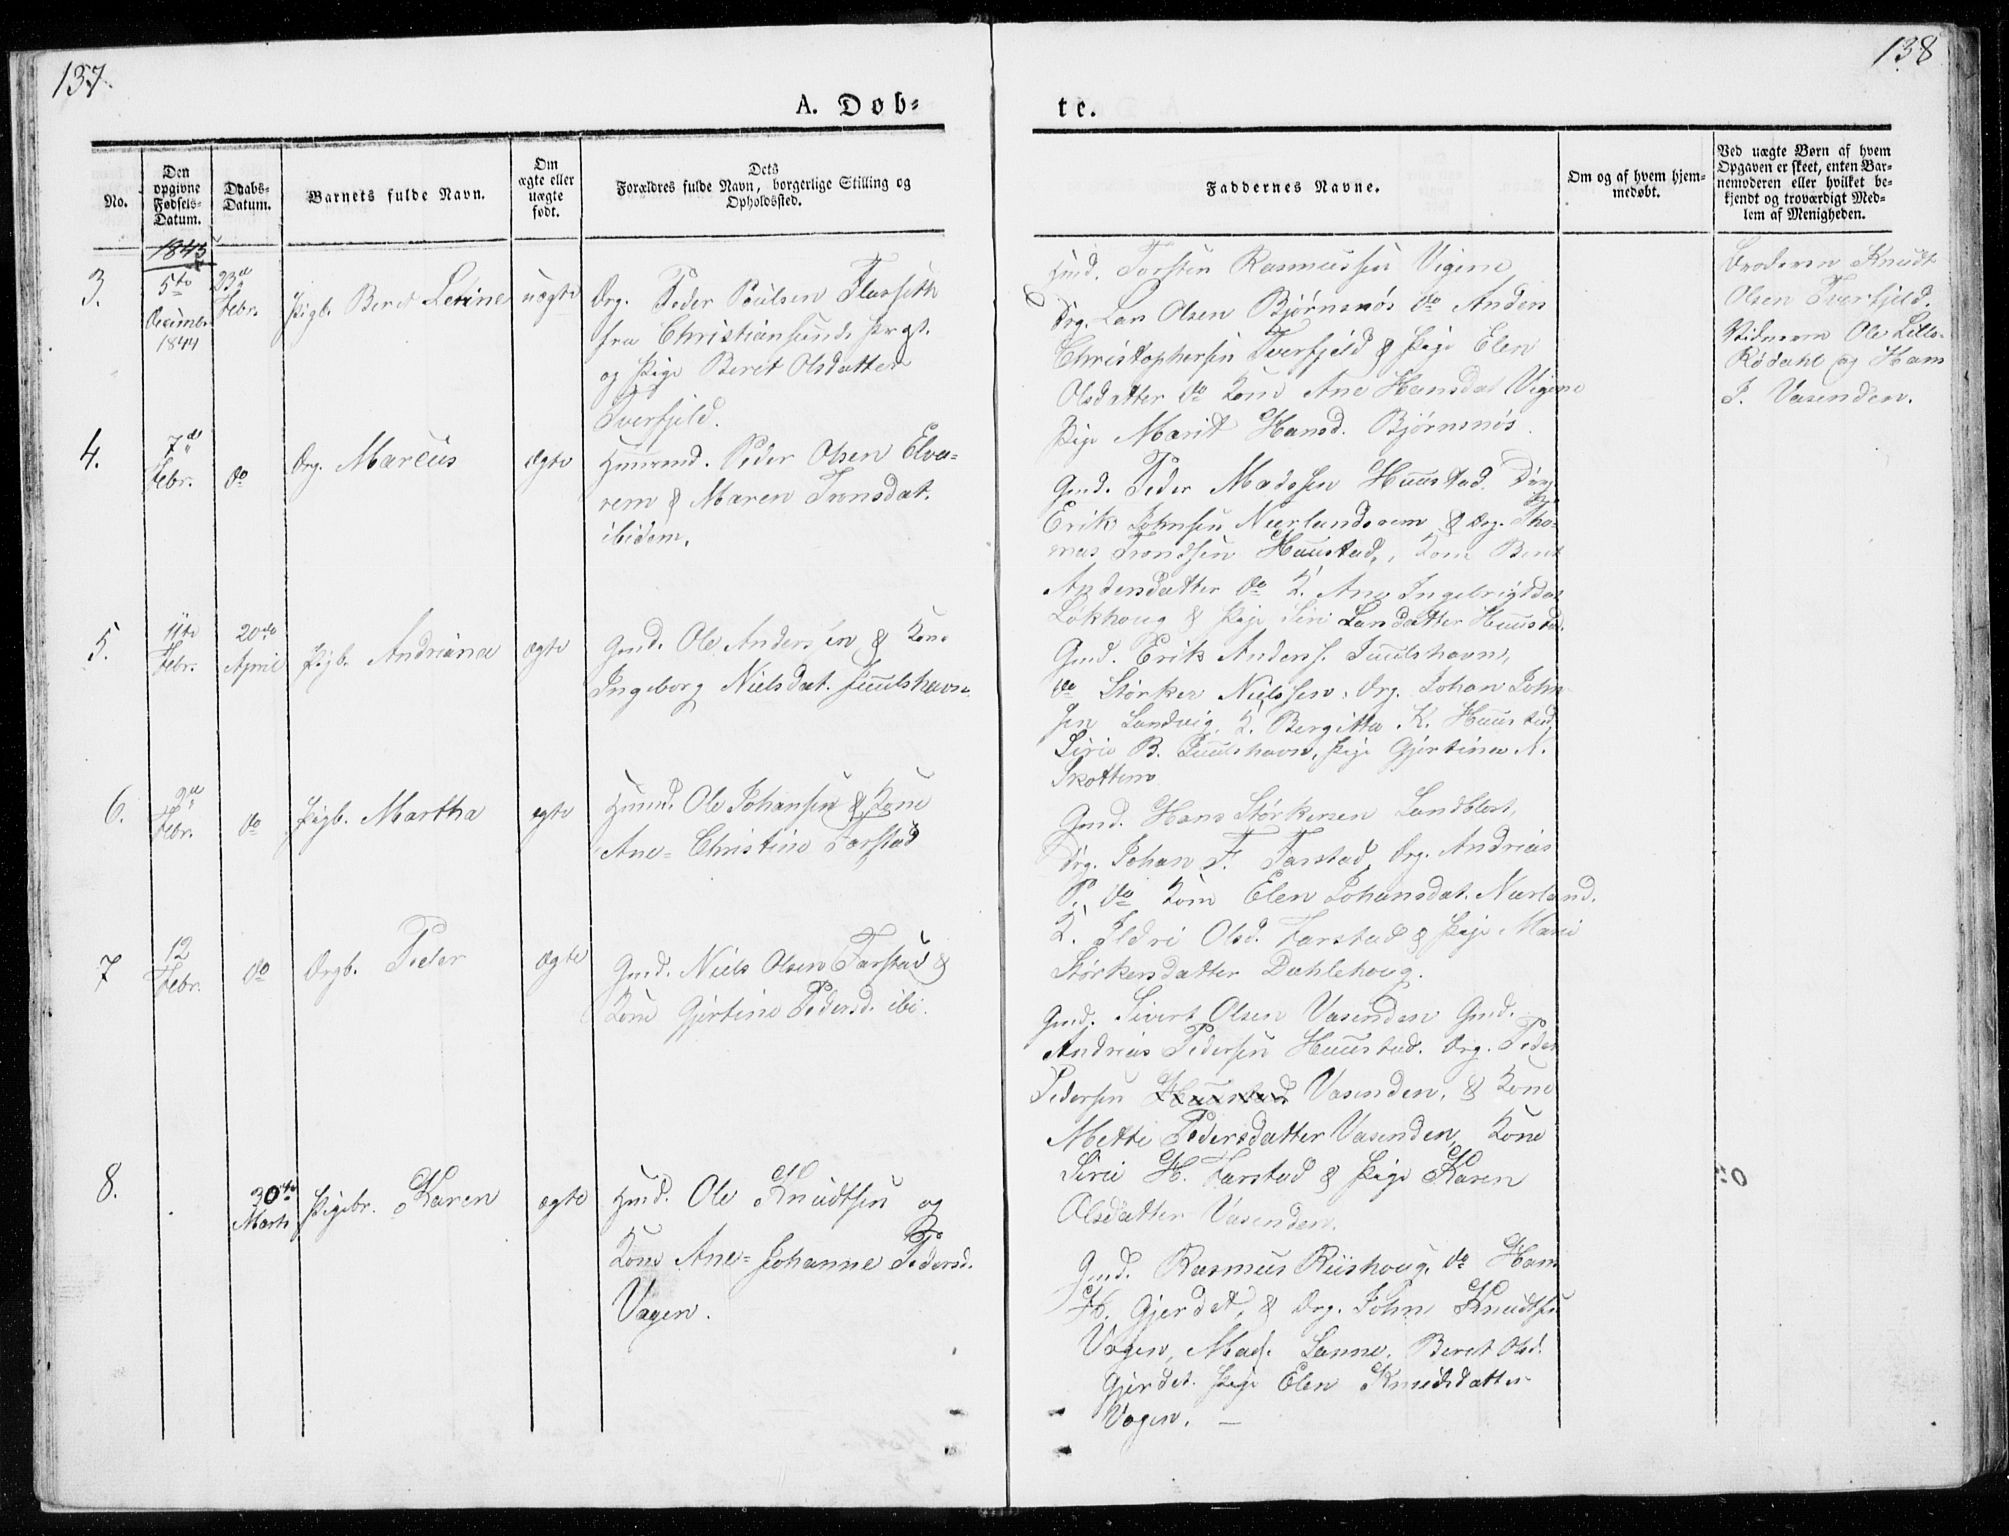 137.
138
A. Døb-
te.
No.
Den
opgivne
Fødsels-
Datum.
Daabs-
Datum.
Barnets fulde Navn.
Om
ægte eller
uægte
født.
Dets
Forældres fulde Navn, borgerlige Stilling og
Opholdssted.
Faddernes Navne.
Om og af hvem hjem-
medøbt.
Ved uægte Børn af hvem
Opgaven er skeet, enten Bar-
nemoderen eller hvilket be-
kjendt og troværdigt Med-
lem af Menigheden.
1845
3.
5te
Decemb.
1844
23de
Febr.
Pigb. Beret Serine
uægte
Drg. Peder Poulsen
fra Christiansunds Prgt.
og Pige Beret Olsdatter
Tverfjeld.
Hmd. Torsten Rasmussen Vigene
Drg. Lars Olsen Bjørnmos do Anders
Christophersen Tverfjeld & Pige Elen
Olsdatter do Kone Ane Hansdat Vigene
Pige Marit Hansd. Bjørnmos.
Broderen Knudt
Olsen Tverfjeld.
Vidnern Ole Lille-
Rødahl og Hans
J. Vasenden.
4.
7de
Febr.
do
Drg. Marcus
ægte
Huusmd. Peder Olsen Elva-
rem & Maren Tronsdat.
ibidem.
Gmd. Peder Madssen Huustad. Drg
Erik Johnsen Nærlandsrem & Drg. Tho-
mas Trondsen Huustad, Kone Beret
Andersdatter do K. Ane Ingebrigtdat
Løkhoug & Pige Siri Larsdatter Huustad.
5.
11te
Febr.
20de
April
Pigb. Andriana
ægte
Gmd. Ole Anderssen & Kone
Ingeborg Nielsdat. Juulshavn.
Gmd. Erik Anderss. Juulshavn,
do Størker Nielssen, Drg. Johan John-
sen Sandvig, K. Bergitta K. Huustad,
Siri B. Juulshavn, Pige Gjertina N.
Skottem
6.
9de
Febr.
do
Pigb. Martha
ægte
Huusmd. Ole Johansen & Kone
Ane-Christine Farstad
Gmd. Hans Størkersen Sandblost,
Drg. Johan F. Farstad, Drg. Andreas
P. do Kone Elen Johansdat. Nærland.
K. Ildri Olsd. Farstad & Pige Mari
Størkersdatter Dahlehoug.
7
12
Febr.
do
Drgb. Peder
ægte
Gmd. Niels Olsen Farstad &
Kone Gjertine Pedersd. ibi.
Gmd. Sivert Olsen Vasenden Gmd.
Andreas Pedersen Huustad. Drg. Peder
Pedersen Huustad Vasenden, & Kone
Mette Pedersdatter Vasenden, Kone
Siri H. Farstad & Pige Karen
Olsdatter Vasenden.
8.
30te
Marts
Pigebr. Karen
ægte
Hmd. Ole Knudtsen og
Kone Ane-Johanne Pedersd.
Vagen.
Gmd. Rasmus Riishoug, do Hans
H. Gjerdet, & Drg. John Knudtsen
Vagen, Beret Olsd.
Gjerdet. Pige Elen Knudsdatter
Vagen. —